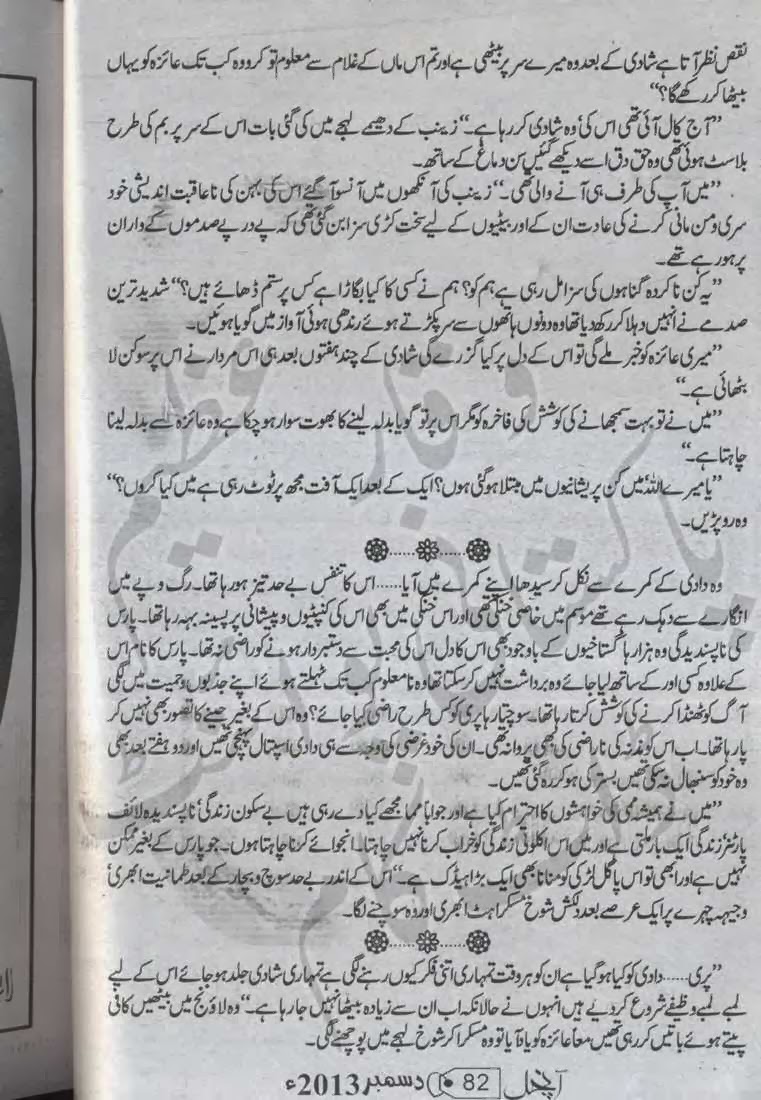 نقص نظر آتا ہے شادی کے بعد وہ میرے سر پر بیٹھی ہے اور تم اس ماں کے غلام سے معلوم تو کرو وہ کب تک عائزہ کو یہاں
بیٹھا کر رکھے گا؟“
”آج کال آئی تھی اس کی‘ وہ شادی کر رہا ہے۔“ زینب کے دھیمے لہجے میں کی گئی بات اس کے سر پر بم کی طرح
بلاسٹ ہوئی تھی وہ حق دق اسے دیکھے گئیں سن دماغ کے ساتھ۔
”میں آپ کی طرف ہی آنے والی تھی۔“ زینب کی آنکھوں میں آنسو آ گئے اس کی بہن کی ناعاقبت اندیشی خود
سری ومن مانی کرنے کی عادت ان کے اور بیٹیوں کے لیے سخت کڑی سزا بن گئی تھی کہ پے در پے صدموں کے وار ان
پر ہو رہے تھے۔
”یہ کن ناکردہ گناہوں کی سزا مل رہی ہے ہم کو؟ ہم نے کسی کا کیا بگاڑا ہے کس پر ستم ڈھائے ہیں؟“ شدید ترین
صدمے نے انہیں دہلا کر رکھ دیا تھا وہ دونوں ہاتھوں سے سر پکڑتے ہوئے رندھی ہوئی آواز میں گویا ہوئیں۔
”میری عائزہ کو خبر ملے گی تو اس کے دل پر کیا گزرے گی شادی کے چند ہفتوں بعد ہی اس مردار نے اس پر سوکن لا
بٹھائی ہے۔“
”میں نے تو بہت سمجھانے کی کوشش کی فاخرہ کو مگر اس پر تو گویا بدلہ لینے کا بھوت سوار ہو چکا ہے وہ عائزہ سے بدلہ لینا
چاہتا ہے۔“
”یا میرے اللہ‘ میں کن پریشانیوں میں مبتلا ہو گئی ہوں؟ ایک کے بعد ایک آفت مجھ پر ٹوٹ رہی ہے میں کیا کروں؟“
وہ رو پڑیں۔
وہ دادی کے کمرے سے نکل کر سیدھا اپنے کمرے میں آیا..... اس کا تنفس بے حد تیز ہو رہا تھا۔ رگ و پے میں
انگارے سے دہک رہے تھے موسم میں خاصی خنکی تھی اور اس خنکی میں بھی اس کی کنپٹیوں و پیشانی پر پسینہ بہہ رہا تھا۔ پارس
کی ناپسندیدگی وہ ہزارہا گستاخیوں کے باوجود بھی اس کا دل اس کی محبت سے دستبردار ہونے کو راضی نہ تھا۔ پارس کا نام اس
کے علاوہ کسی اور کے ساتھ لیا جائے وہ برداشت نہیں کر سکتا تھا وہ نامعلوم کب تک ٹہلتے ہوئے اپنے جذبوں وحمیت میں لگی
آگ کو ٹھنڈا کرنے کی کوشش کرتا رہا تھا۔ سوچتا رہا پری کو کس طرح راضی کیا جائے؟ وہ اس کے بغیر جینے کا تصور بھی نہیں کر
پا رہا تھا۔ اب اس کو مذنہ کی ناراضی کی بھی پروا نہ تھی۔ ان کی خود غرضی کی وجہ سے ہی دادی اسپتال پہنچی تھیں اور دو ہفتے بعد بھی
وہ خود کو سنبھال نہ سکی تھیں بستر کی ہو کر رہ گئی تھیں۔
”میں نے ہمیشہ ممی کی خواہشوں کا احترام کیا ہے اور جواباً مما مجھے کیا دے رہی ہیں بے سکون زندگی‘ ناپسندیدہ لائف
پارٹنر‘ زندگی ایک بار ملتی ہے اور میں اس اکلوتی زندگی کو خراب کرنا نہیں چاہتا۔ انجوائے کرنا چاہتا ہوں۔ جو پارس کے بغیر ممکن
نہیں ہے اور ابھی تو اس پاگل لڑکی کو منانا بھی ایک بڑا ہیڈک ہے۔“ اس کے اندر بے حد سوچ و بچار کے بعد طمانیت ابھری‘
وجیہہ چہرے پر ایک عرصے بعد دلکش شوخ مسکراہٹ ابھری اور وہ سوچنے لگا۔
”پری..... دادی کو کیا ہو گیا ہے ان کو ہر وقت تمہاری اتنی فکر کیوں رہنے لگی ہے تمہاری شادی جلد ہو جائے اس کے لیے
لمبے لمبے وظیفے شروع کر دیے ہیں انہوں نے حالانکہ اب ان سے زیادہ بیٹھا نہیں جا رہا ہے۔“ وہ لاؤنج میں بیٹھیں کافی
پیتے ہوئے باتیں کر رہی تھیں معاً عائزہ کو یاد آیا تو وہ مسکرا کر شوخ لہجے میں پوچھنے لگی۔
آنچل 82 دسمبر 2013ء